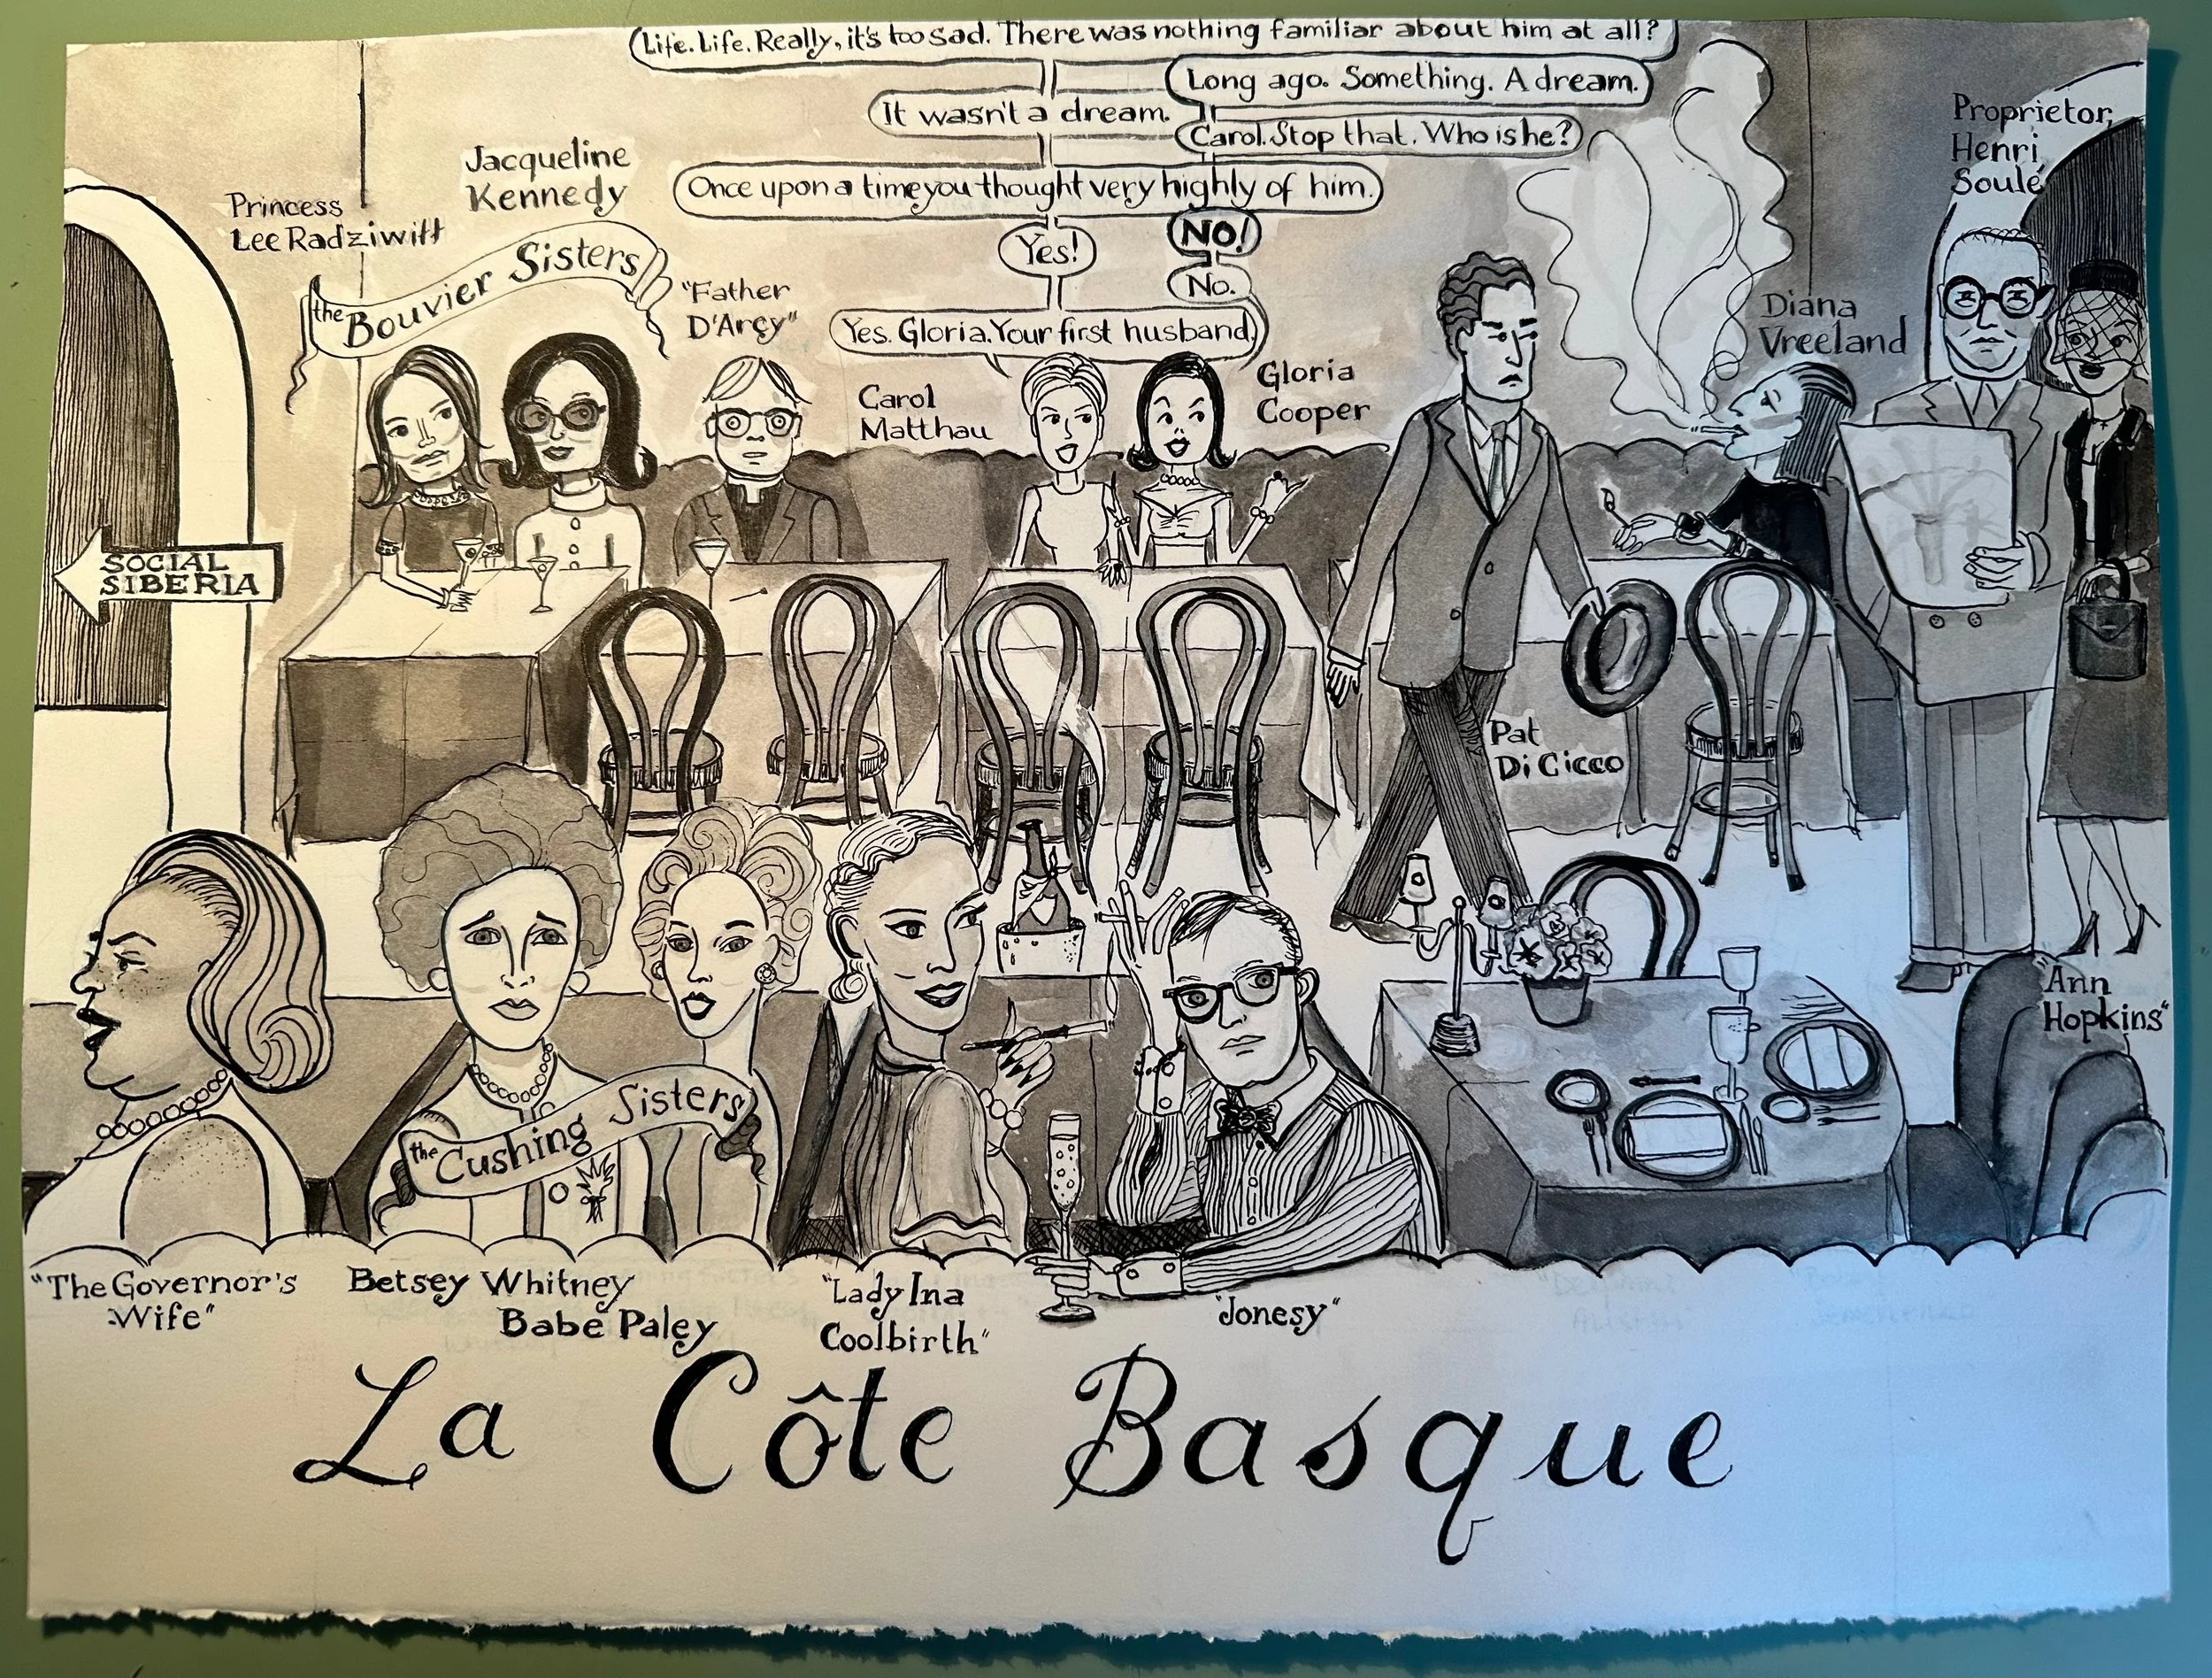 Life. Life. Really, it's too sad. There was nothing familiar about him at all?
Long ago. Something. A dream.
It wasn't a dream.
Carol. Stop that. Who is he?
Once upon a time you thought very highly of him.
NO!
Yes!
No.
Yes. Gloria. Your first husband.
Proprietor,
Henri
Soulé
Jacqueline
Kennedy
Princess
Lee Radziwill
the Bouvier Sisters
"Father
D'Arcy"
Carol
Matthau
Gloria
Cooper
Diana
Vreeland
SOCIAL
SIBERIA
Pat
Di Cicco
"Ann
Hopkins"
the Cushing Sisters
"The Governor's
Wife"
Betsey Whitney
Babe Paley
"Lady Ina
Coolbirth"
"Jonesy"
La Côte Basque